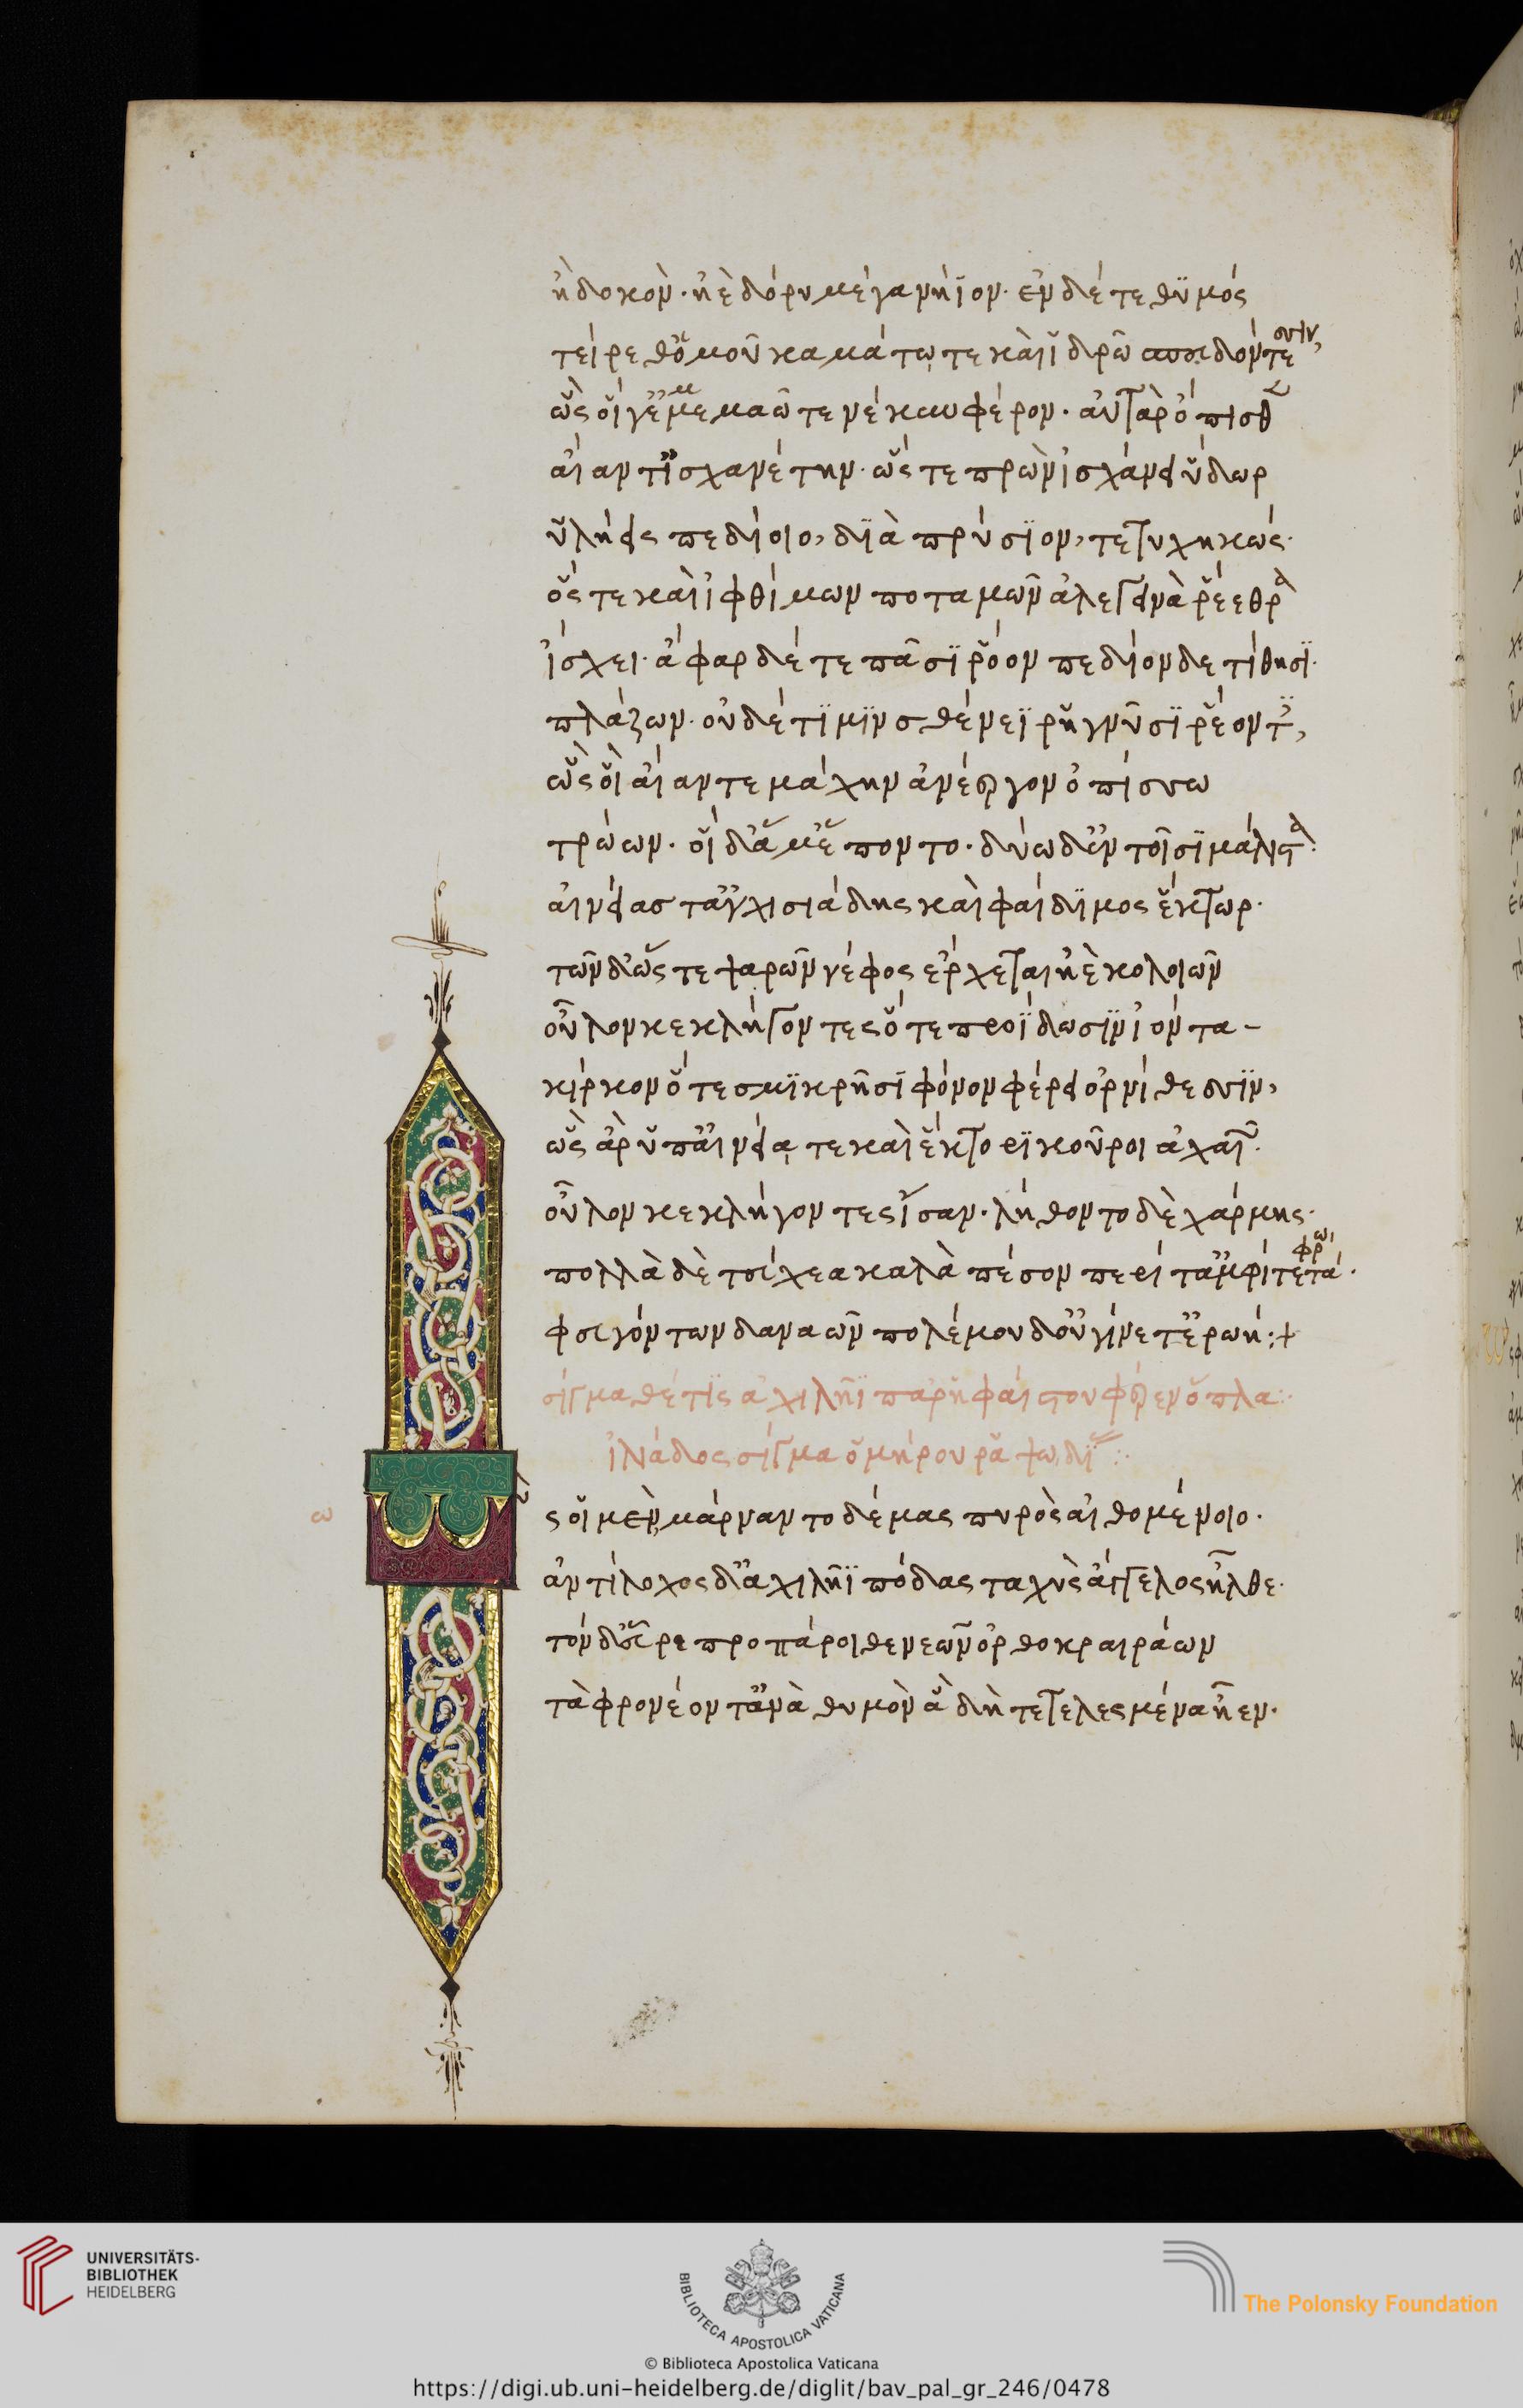 ἢ δοκὸν· ἠὲ δόρυ μέγα νήϊον· ἐν δέ τε θϋμός
τείρεθ᾽ ὁμοῦ καμάτῳ τε καὶ ἱδρῶ σπευδόντεσσιν,
ὣς οἵ γ᾽ ἐμμεμαῶτε νέκυν φέρον· αὐτὰρ ὄπισθεν
αἴαντ᾽ ἰσχανέτην· ὥς τε πρὼν ἰσχάνει ὕδωρ
ὑλήεις πεδίοιο, δϊαπρύσϊον, τετυχηκώς·
ὅς τε καὶ ἰφθίμων ποταμῶν ἀλεγεινὰ ῥέεθρα
ἴσχει· ἄφαρ δέ τε πᾶσϊ ῥόον πεδίονδε τίθησϊ·
πλάζων· οὐδέ τϊ μϊν σθένεϊ ῥηγνῦσϊ ῥέοντες,
ὣς οἳ αἴαντε μάχην ἀνέεργον ὀπίσσω
τρώων· οἳ δ᾽ ἅμ᾽ ἕποντο· δύω δ᾽ ἐν τοῖσϊ μάλιστα·
αἰνείας τ᾽ ἀγχισιάδης καὶ φαίδϊμος ἕκτωρ·
τῶν δ᾽ ὥς τε ψαρῶν νέφος ἔρχεται ἠὲ κολοιῶν
οὖλον κεκλήγοντες ὅτε προΐδωσϊν ἰόντα–
κίρκον ὅ τε σμϊκρῆσϊ φόνον φέρει ὀρνίθεσσϊν,
ὣς ἄρ᾽ ὑπ᾽ αἰνείᾳ τε καὶ ἕκτορϊ κοῦροι ἀχαιῶν·
οὖλον κεκλήγοντες ἴσαν· λήθοντο δὲ χάρμης·
πολλὰ δὲ τεύχεα καλὰ πέσον περί τ᾽ ἀμφί τε τάφρωι·
φευγόντων δαναῶν πολέμου δ᾽ οὐ γίνετ᾽ ἐρωή:+
σίγμα θέτϊς ἀχιλῆϊ παρ᾽ ἡφαίστου φέρεν ὅπλα:·
ἰλιάδος σίγμα ὁμήρου ῥαψωδί :·
ω ὣς οἱ μὲν μάρναντο δέμας πυρὸς αἰθομένοιο·
ἀντίλοχος δ᾽ ἀχιλῆϊ πόδας ταχὺς ἄγγελος ἦλθε·
τὸν δ᾽ εὗρε προπάροιθε νεῶν ὀρθοκραιράων
τὰ φρονέοντ᾽ ἀνὰ θυμὸν ἃ δὴ τετελεσμένα ἦεν·
UNIVERSITÄTS-
BIBLIOTHEK
HEIDELBERG
BIBLIOTECA APOSTOLICA VATICANA
The Polonsky Foundation
© Biblioteca Apostolica Vaticana
https://digi.ub.uni-heidelberg.de/diglit/bav_pal_gr_246/0478